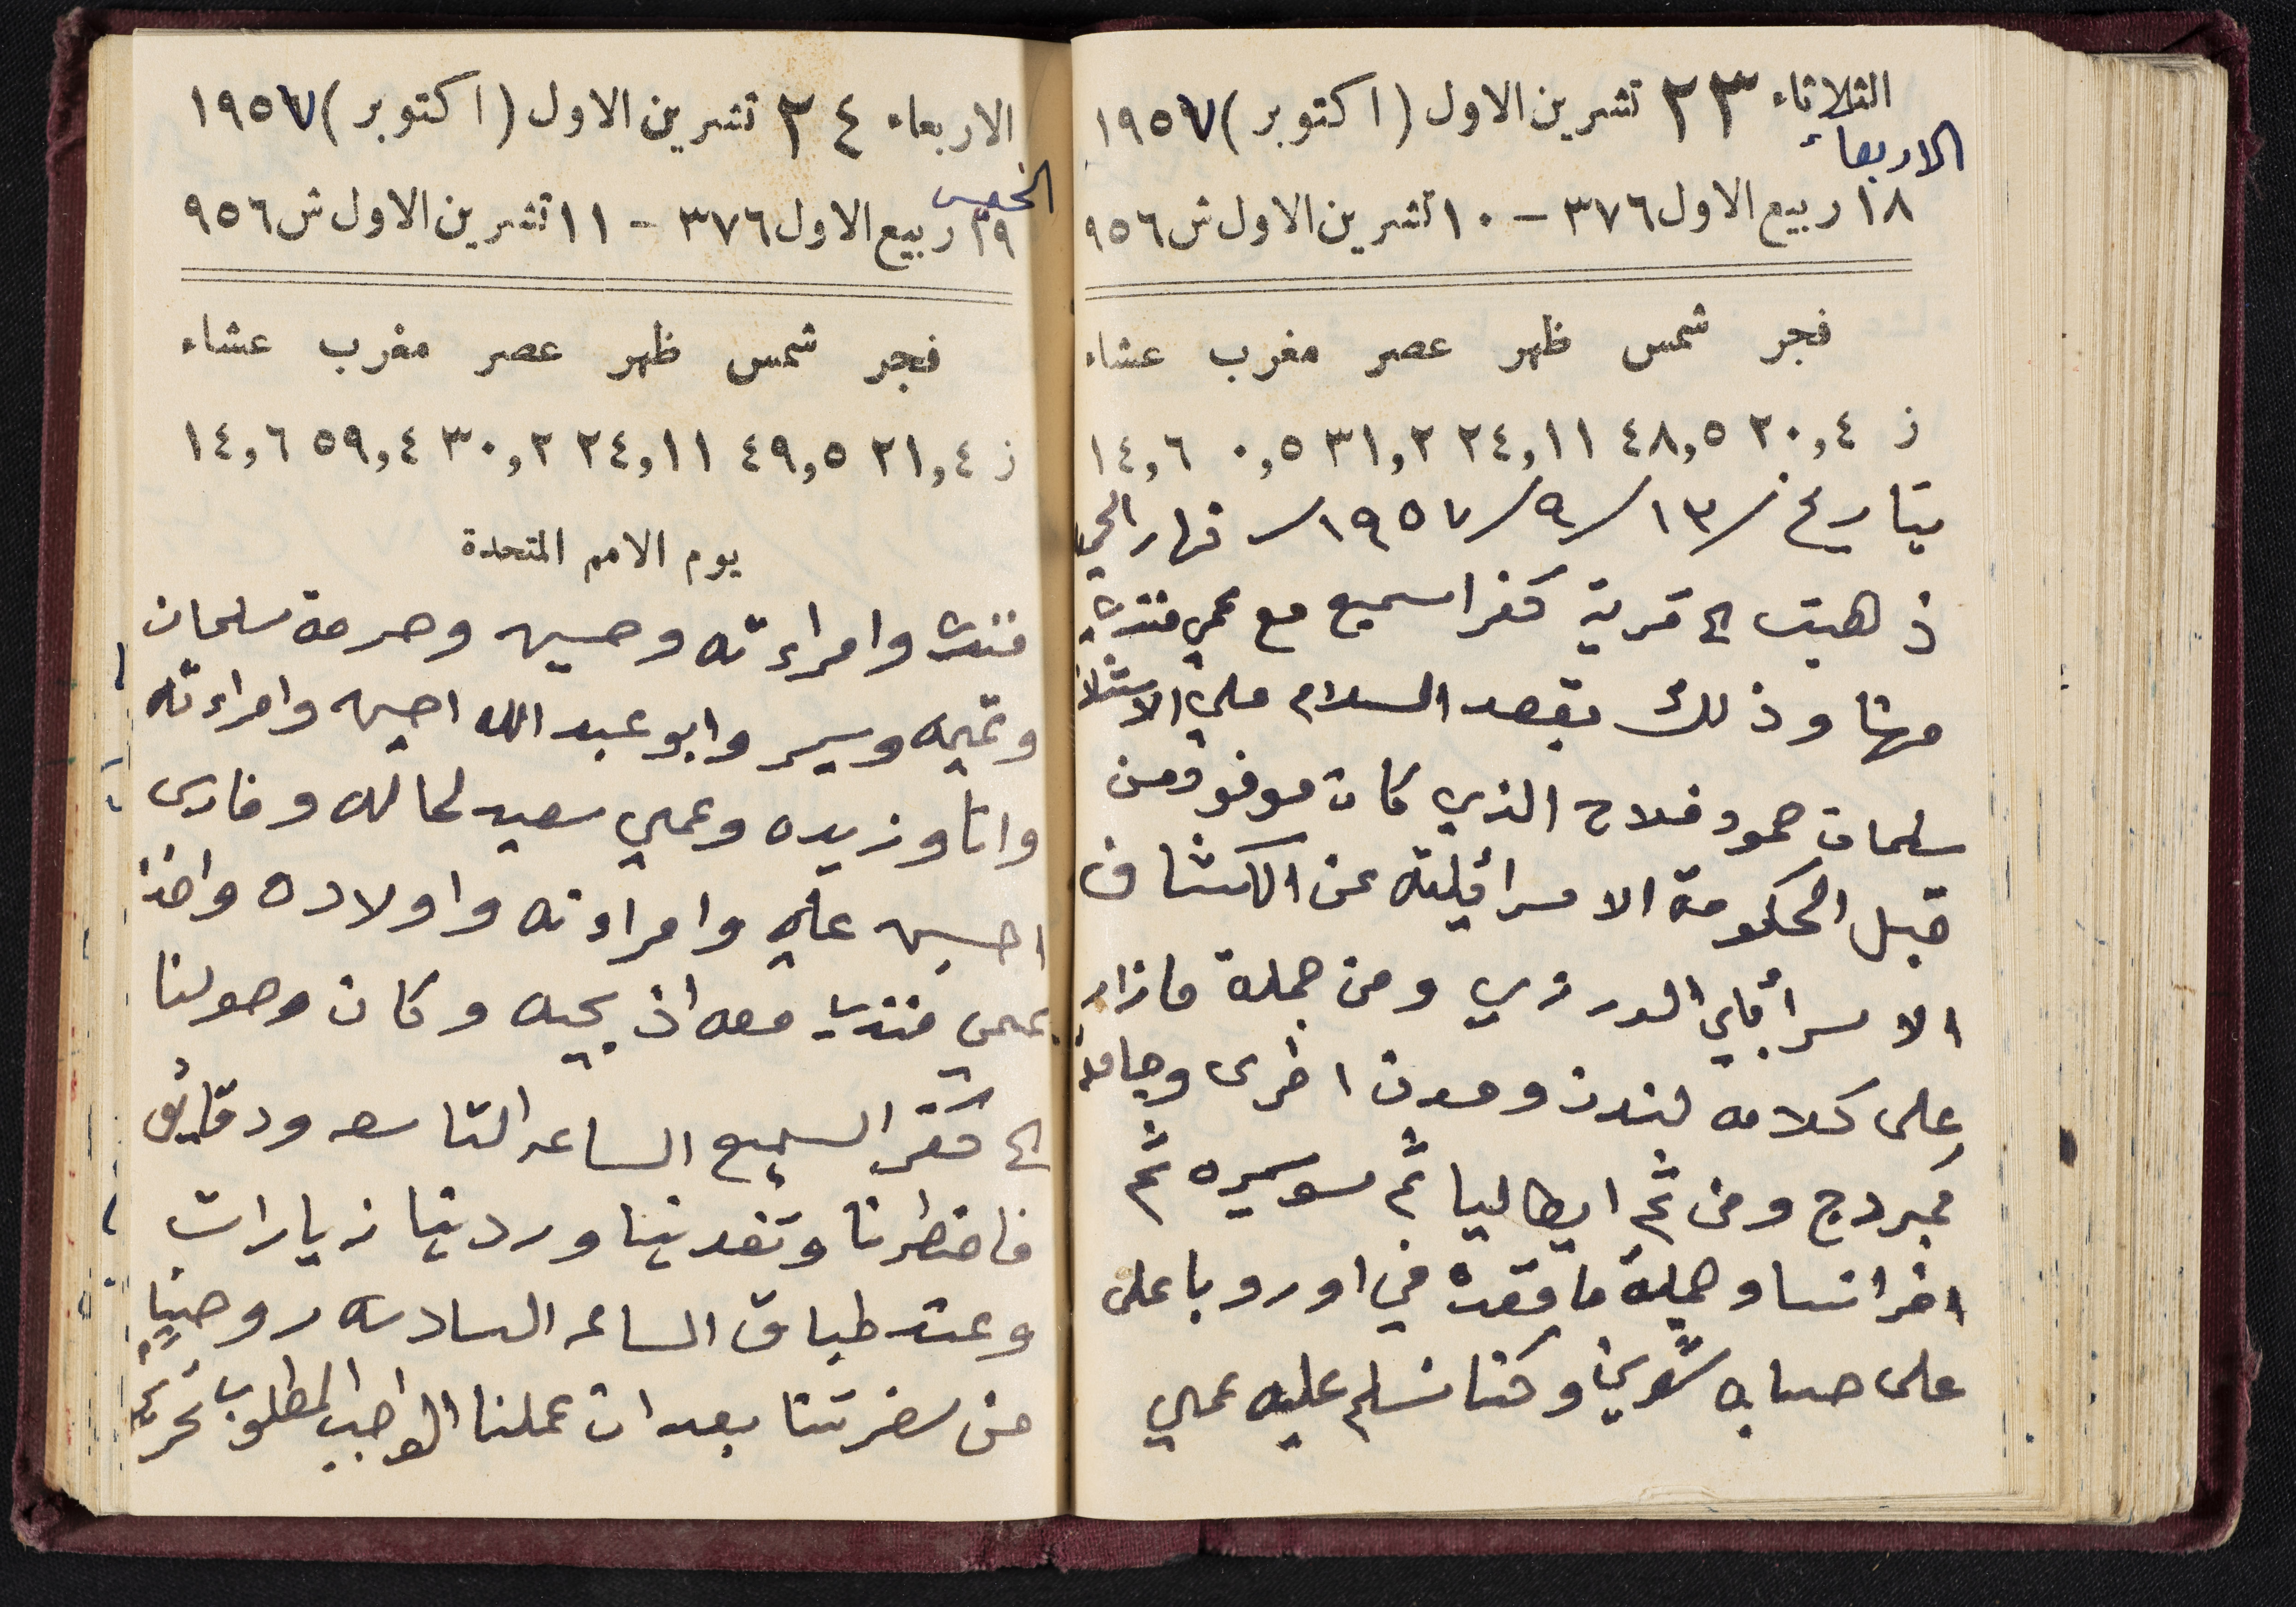 الثلاثاء ٢٣ تشرين الاول (اكتوبر) ١٩٥٧
الاربعاء
١٨ ربيع الاول ٣٧٦ - ١٠ تشرين الاول ش ٩٥٦
فجر شمس ظهر عصر مغرب عشاء
ز ٢٠,٤ ٤٨,٥ ٢٤,١١ ٣١,٢ ٠,٥ ١٤,٦
بتاريخ /١٣/٩/١٩٥٧ نهار
ذهبت الى قرية كفراسميع مع عمي
مهنا وذلك بقصد السلام على الاستاذ
سلمان حمود فلاح الذي كان موفود من
قبل الحكومة الاسرائيلية عن الكشاف
الاسرائيلي الدرزي ومن جملة مازار
على كلامه لندن ومدن اخرى وجامعة
كمبردج ومن ثم ايطاليا ثم سويسره ثم
افرانسا وجملة ما قعده في اوروبا على
على حسابه شهرين وكنا نسلم عليه عمي
الاربعاء ٢٤ تشرين الاول (اكتوبر) ١٩٥٧
الخميس
١٩ ربيع الاول ٣٧٦ - ١١ تشرين الاول ش ٩٥٦
فجر شمس ظهر عصر مغرب عشاء
ز ٢١,٤ ٤٩,٥ ٢٤,١١ ٣٠,٢ ٥٩,٤ ١٤,٦
يوم الامم المتحدة
وامراءته وحسين وحرمة سلمان
وابو عبد الله احسين وامراءته
وانا وزيده وعمي سعيد لحاله وفارس
احسين علي وامراءته واولاده واخذ
عمي معه اذبيحه وكان وصولنا
الى كفر السميع الساعه التاسعه ودقائق
فافطرنا وتغدينا وردينا زيارات
وعند طباق الساعه السادسه روحنا
من سفرتنا بعد ان عملنا الواجب المطلوب